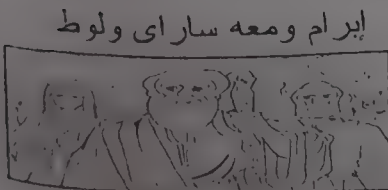 إبرام ومعه ساراى ولوط